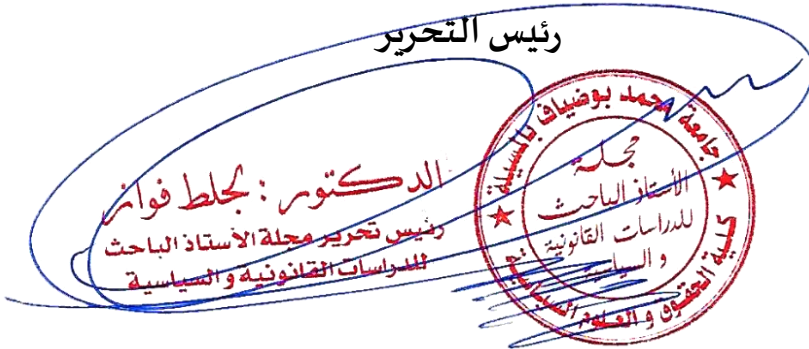 رئيس التحرير
الدكتور : لجلط فواز
رئيس تحرير مجلة الأستاذ الباحث
للدراسات القانونية و السياسية
جامعة محمد بوضياف بالمسيلة
مجلة
الأستاذ الباحث
للدراسات القانونية
و السياسية
كلية الحقوق و العلوم السياسية